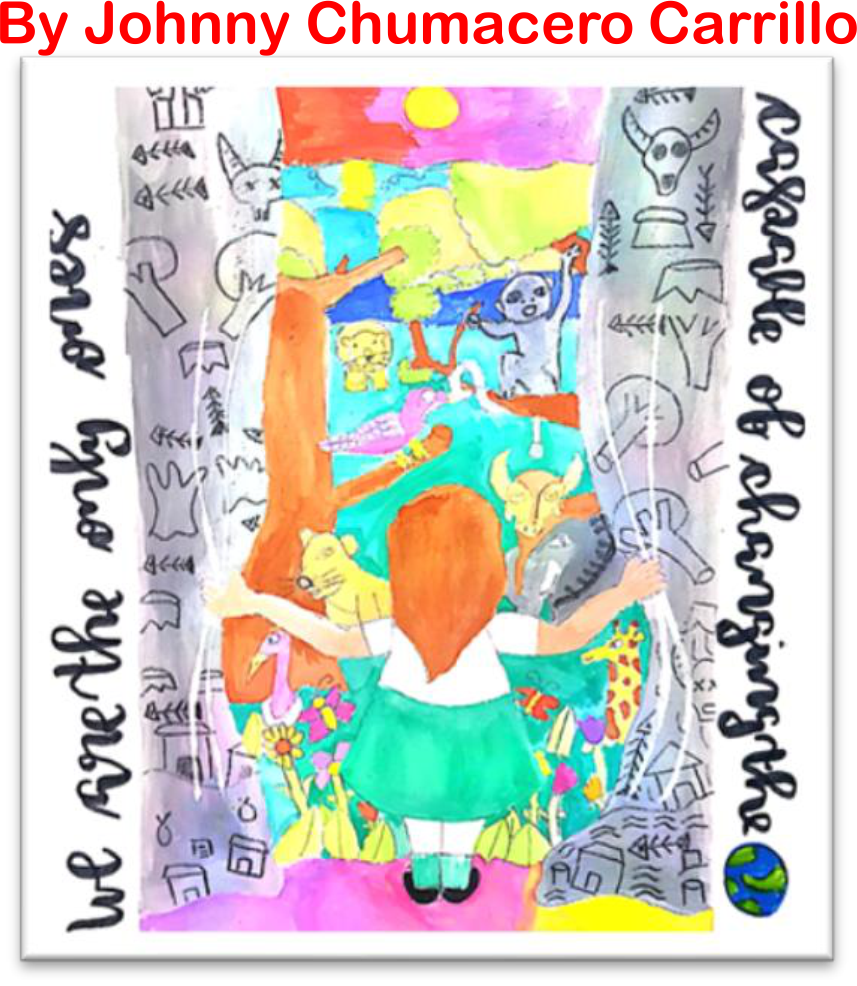 By Johnny Chumacero Carrillo
We are the only ones
capable of changing the